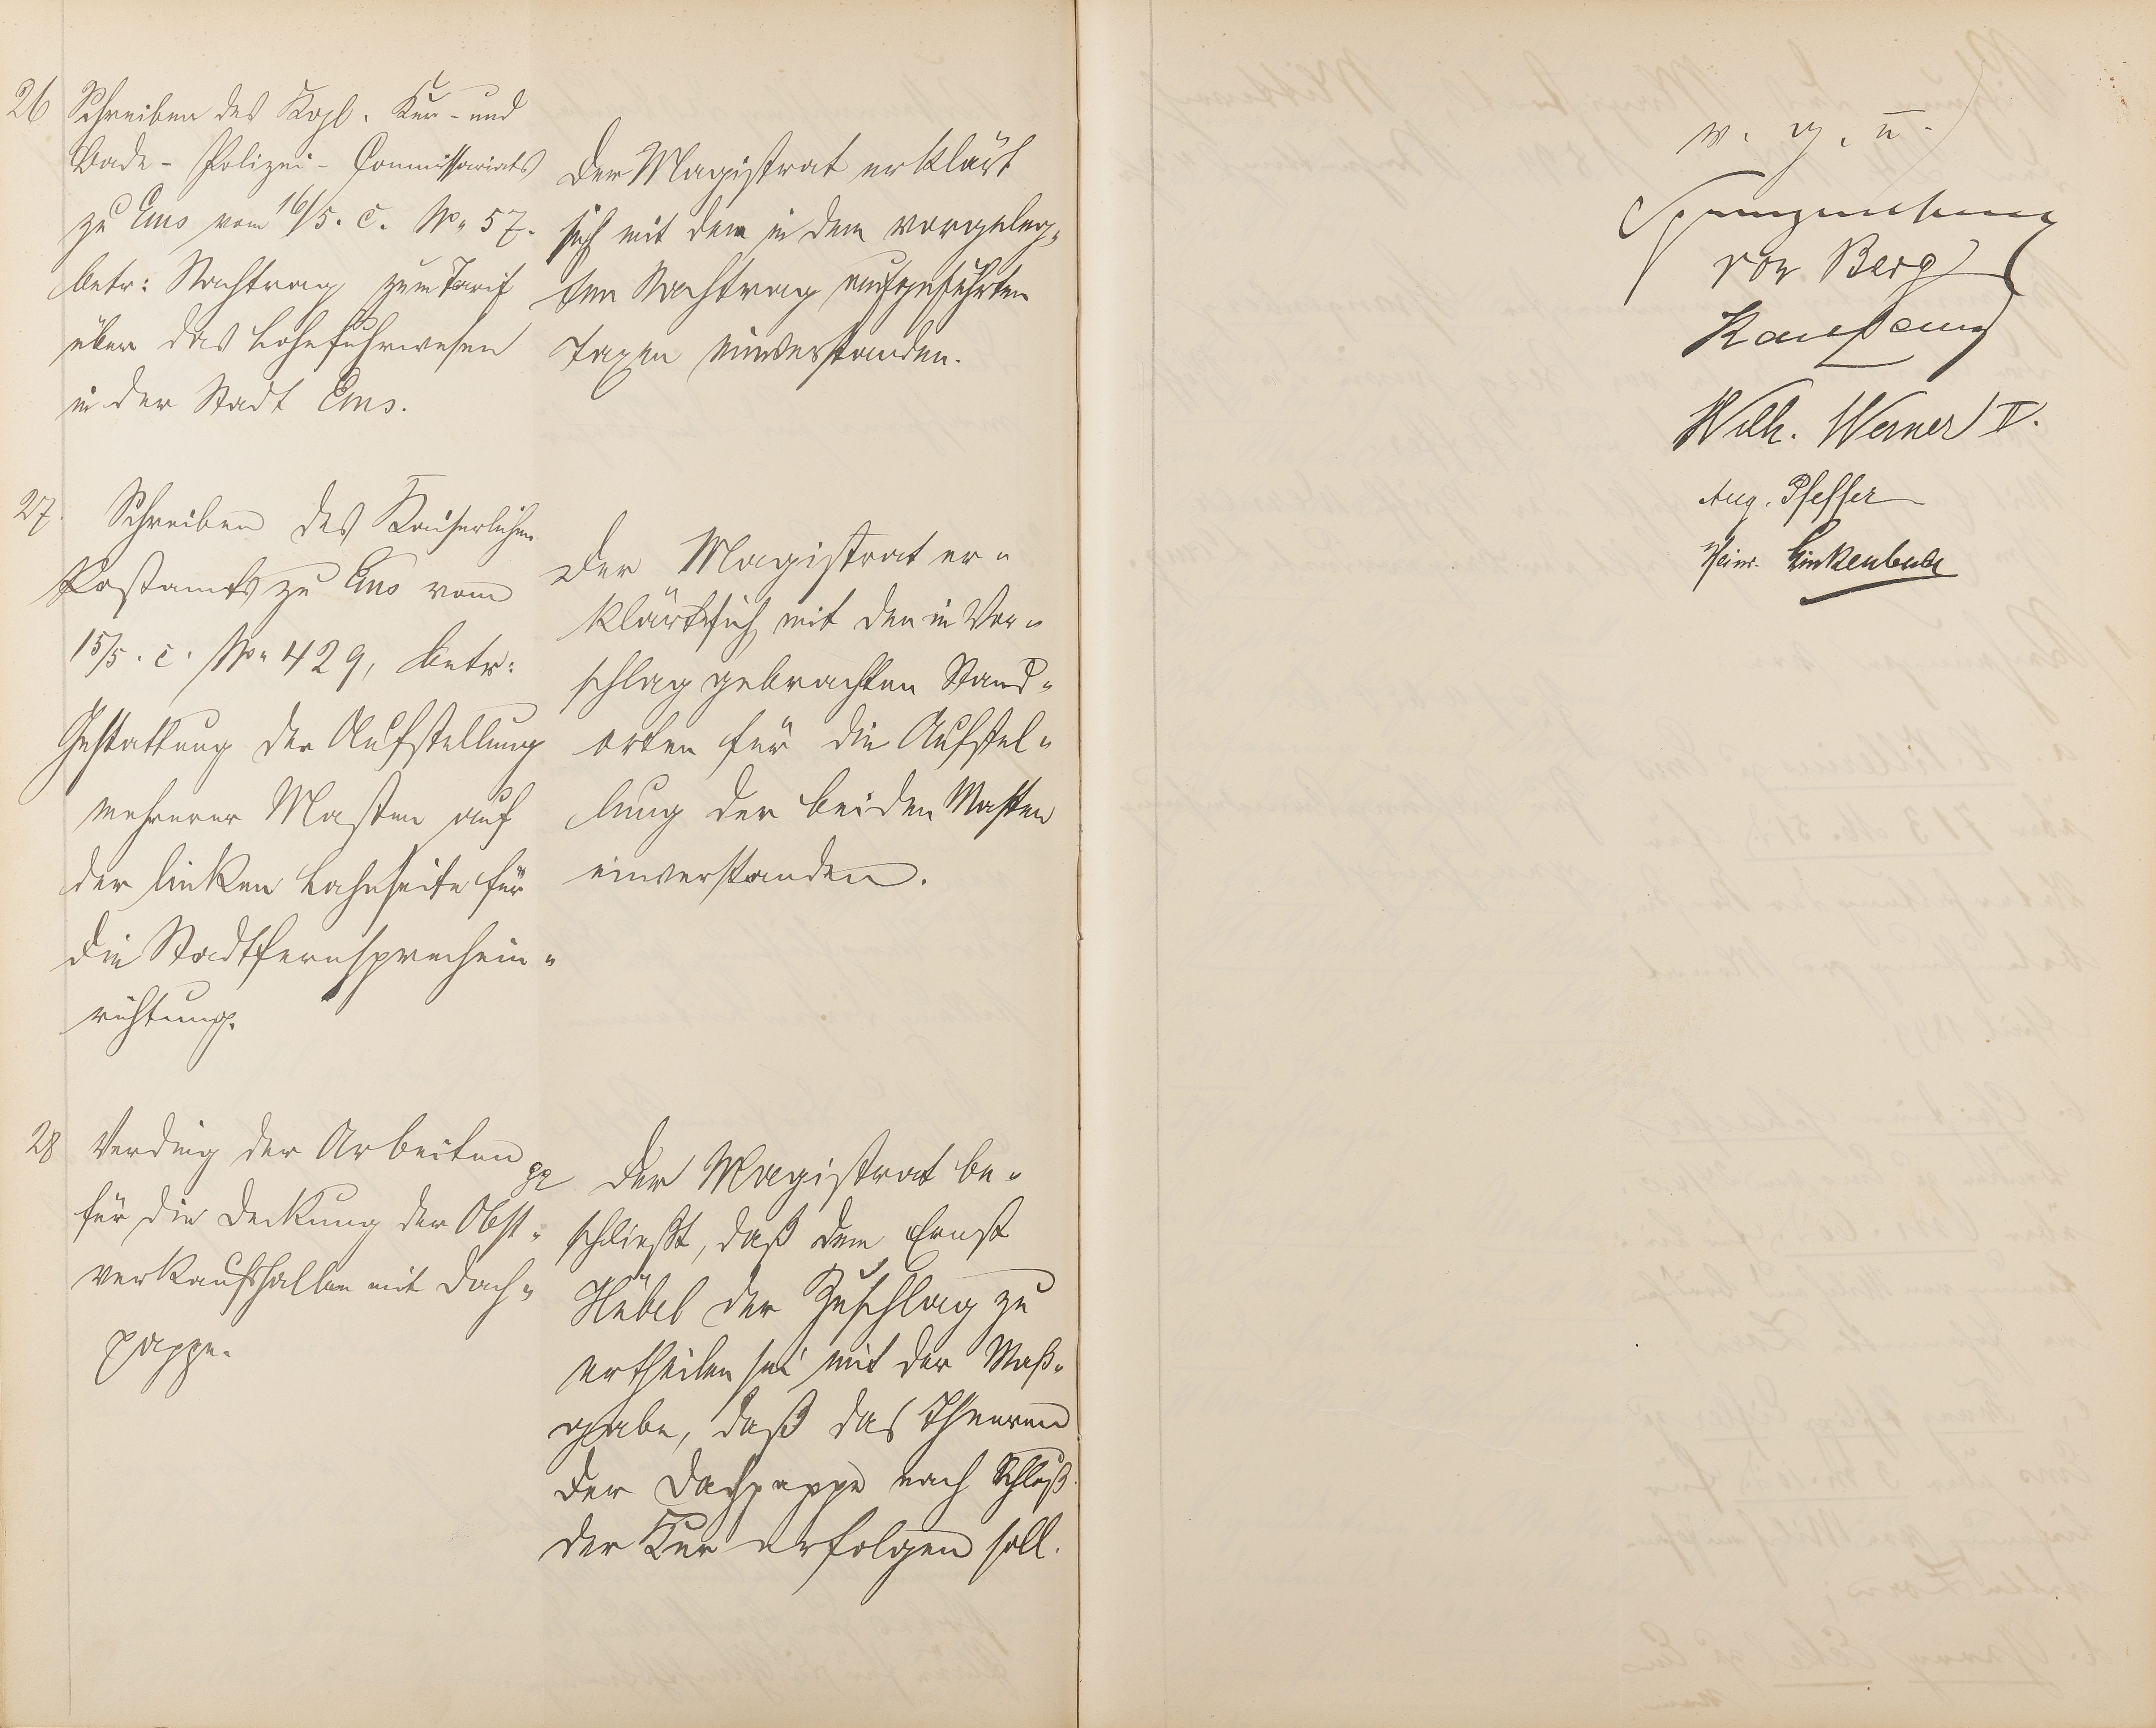 26 Schreiben des Kgl. Kur- und
Bade-Polizei-Commissariats
zu Ems vom 16/5. c. No 57.
betr: Nachtrag zum Tarif
über das Lohnfuhrwesen
in der Stadt Ems.
Der Magistrat erklärt
sich mit den in dem vorgeleg-
ten Nachtrag aufgeführten
Taxen einverstanden.
27. Schreiben des Kaiserlichen
Postamts zu Ems vom
15/5. c. No 429, betr:
Gestattung der Aufstellung
mehrerer Masten auf
der linken Lahnseite für
die Stadtfernsprechein-
richtung.
Der Magistrat er-
klärt sich mit den in Vor-
schlag gebrachten Stand-
orten für die Aufstel-
lung der beiden Masten
einverstanden.
28 Verding der Arbeiten pp
für die Deckung der Obst-
verkaufshallen mit Dach-
pappe.
Der Magistrat be-
schließt, daß dem Ernst
Hübel der Zuschlag zu
ertheilen sei mit der Maß-
gabe, daß das Theeren
der Dachpappe nach Schluß
der Kur erfolgen soll.
v. g. u.
von Berg
Wilh. Werner IV.
Aug. Pfeffer
Heinr. Linkenbach